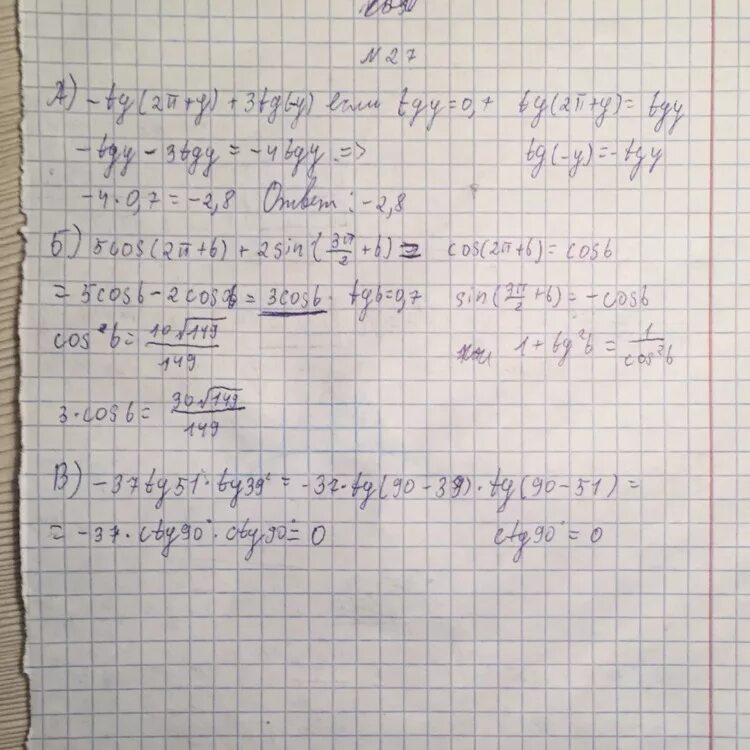 N27
А) -tg(2π+y) + 3tg(-y) если tgy=0,+ tg(2π+y)= tgy
-tgy - 3tgy = -4tgy => tg(-y)=-tgy
-4·0,7 = -2,8 Ответ: -2,8
Б) 5cos(2π+b) + 2sin(3π/2+b) = cos(2π+b)=cosb
= 5cosb-2cosb = 3cosb · tgb=0,7 sin(3π/2+b)=-cosb
cos²b= 10√149/149 1+tg²b = 1/cos²b
3·cosb= 30√149/149
В) -37tg51·tg39° = -37·tg(90-39)·tg(90-51) =
= -37·ctg90°·ctg90°= 0 ctg90°=0